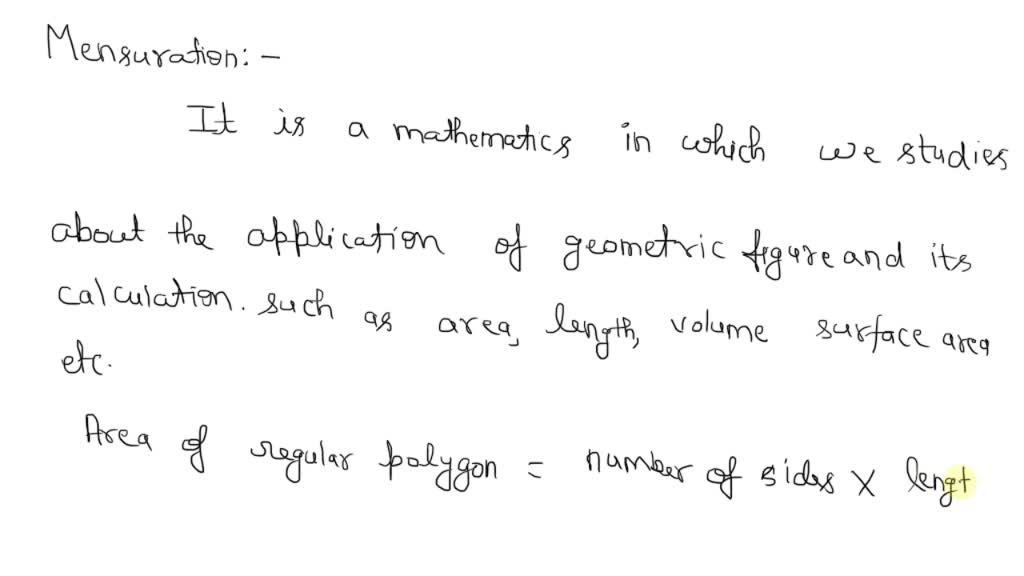 Mensuration:-
It is a mathematics in which we studies
about the application of geometric figure and its
calculation. such as area, length, volume surface area
etc.
Area of regular polygon = number of sides X lengt